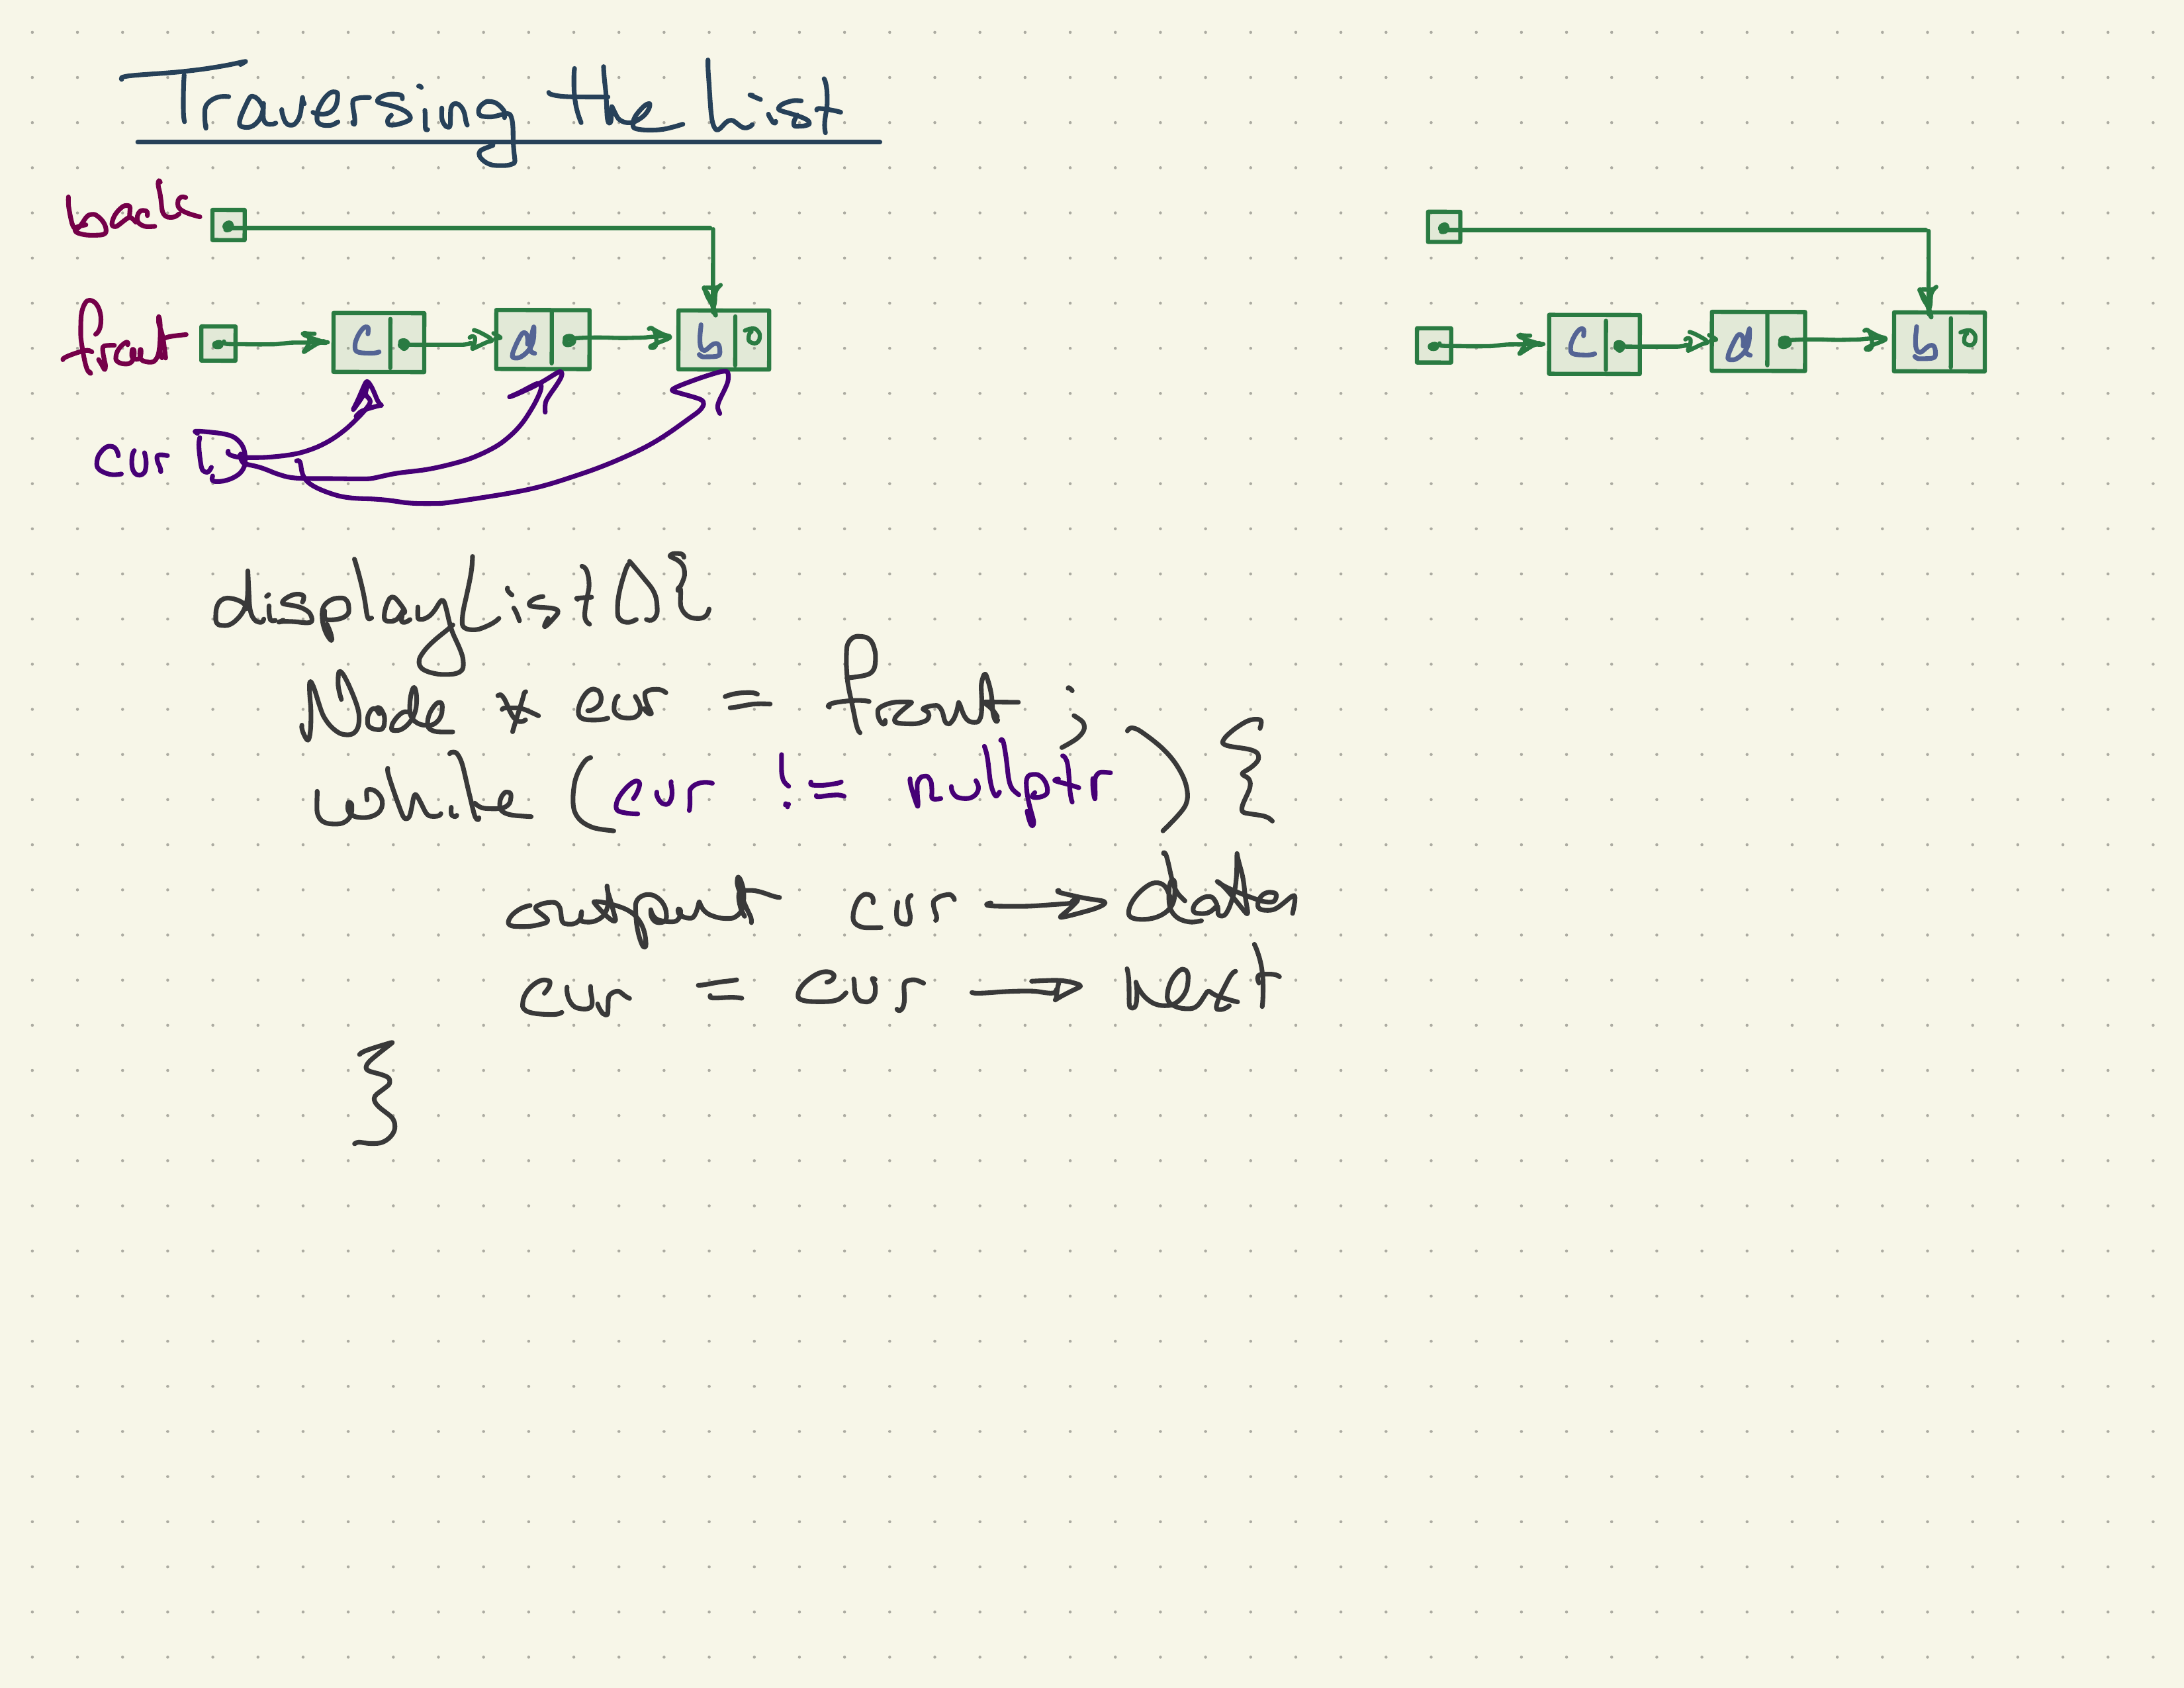 Traversing the List
back
front c d b c d b
cur
displayList(){
Node * cur = front;
while (cur != nullptr){
output cur → data
cur = cur → next
}